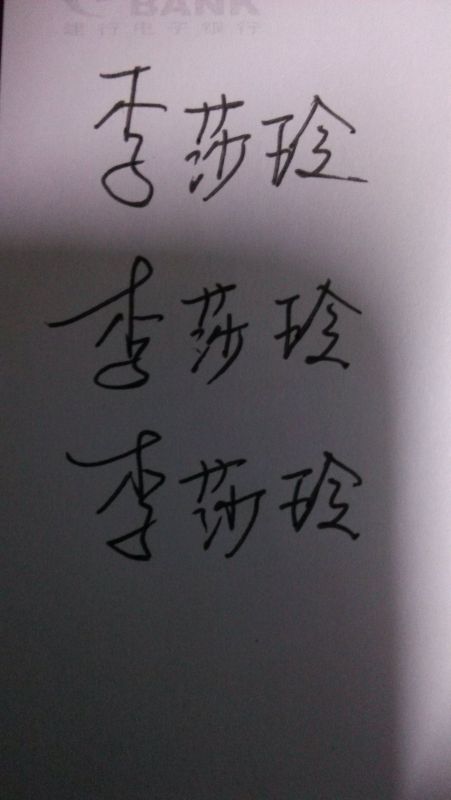 BANK
建行电子银行
李莎玲
李莎玲
李莎玲